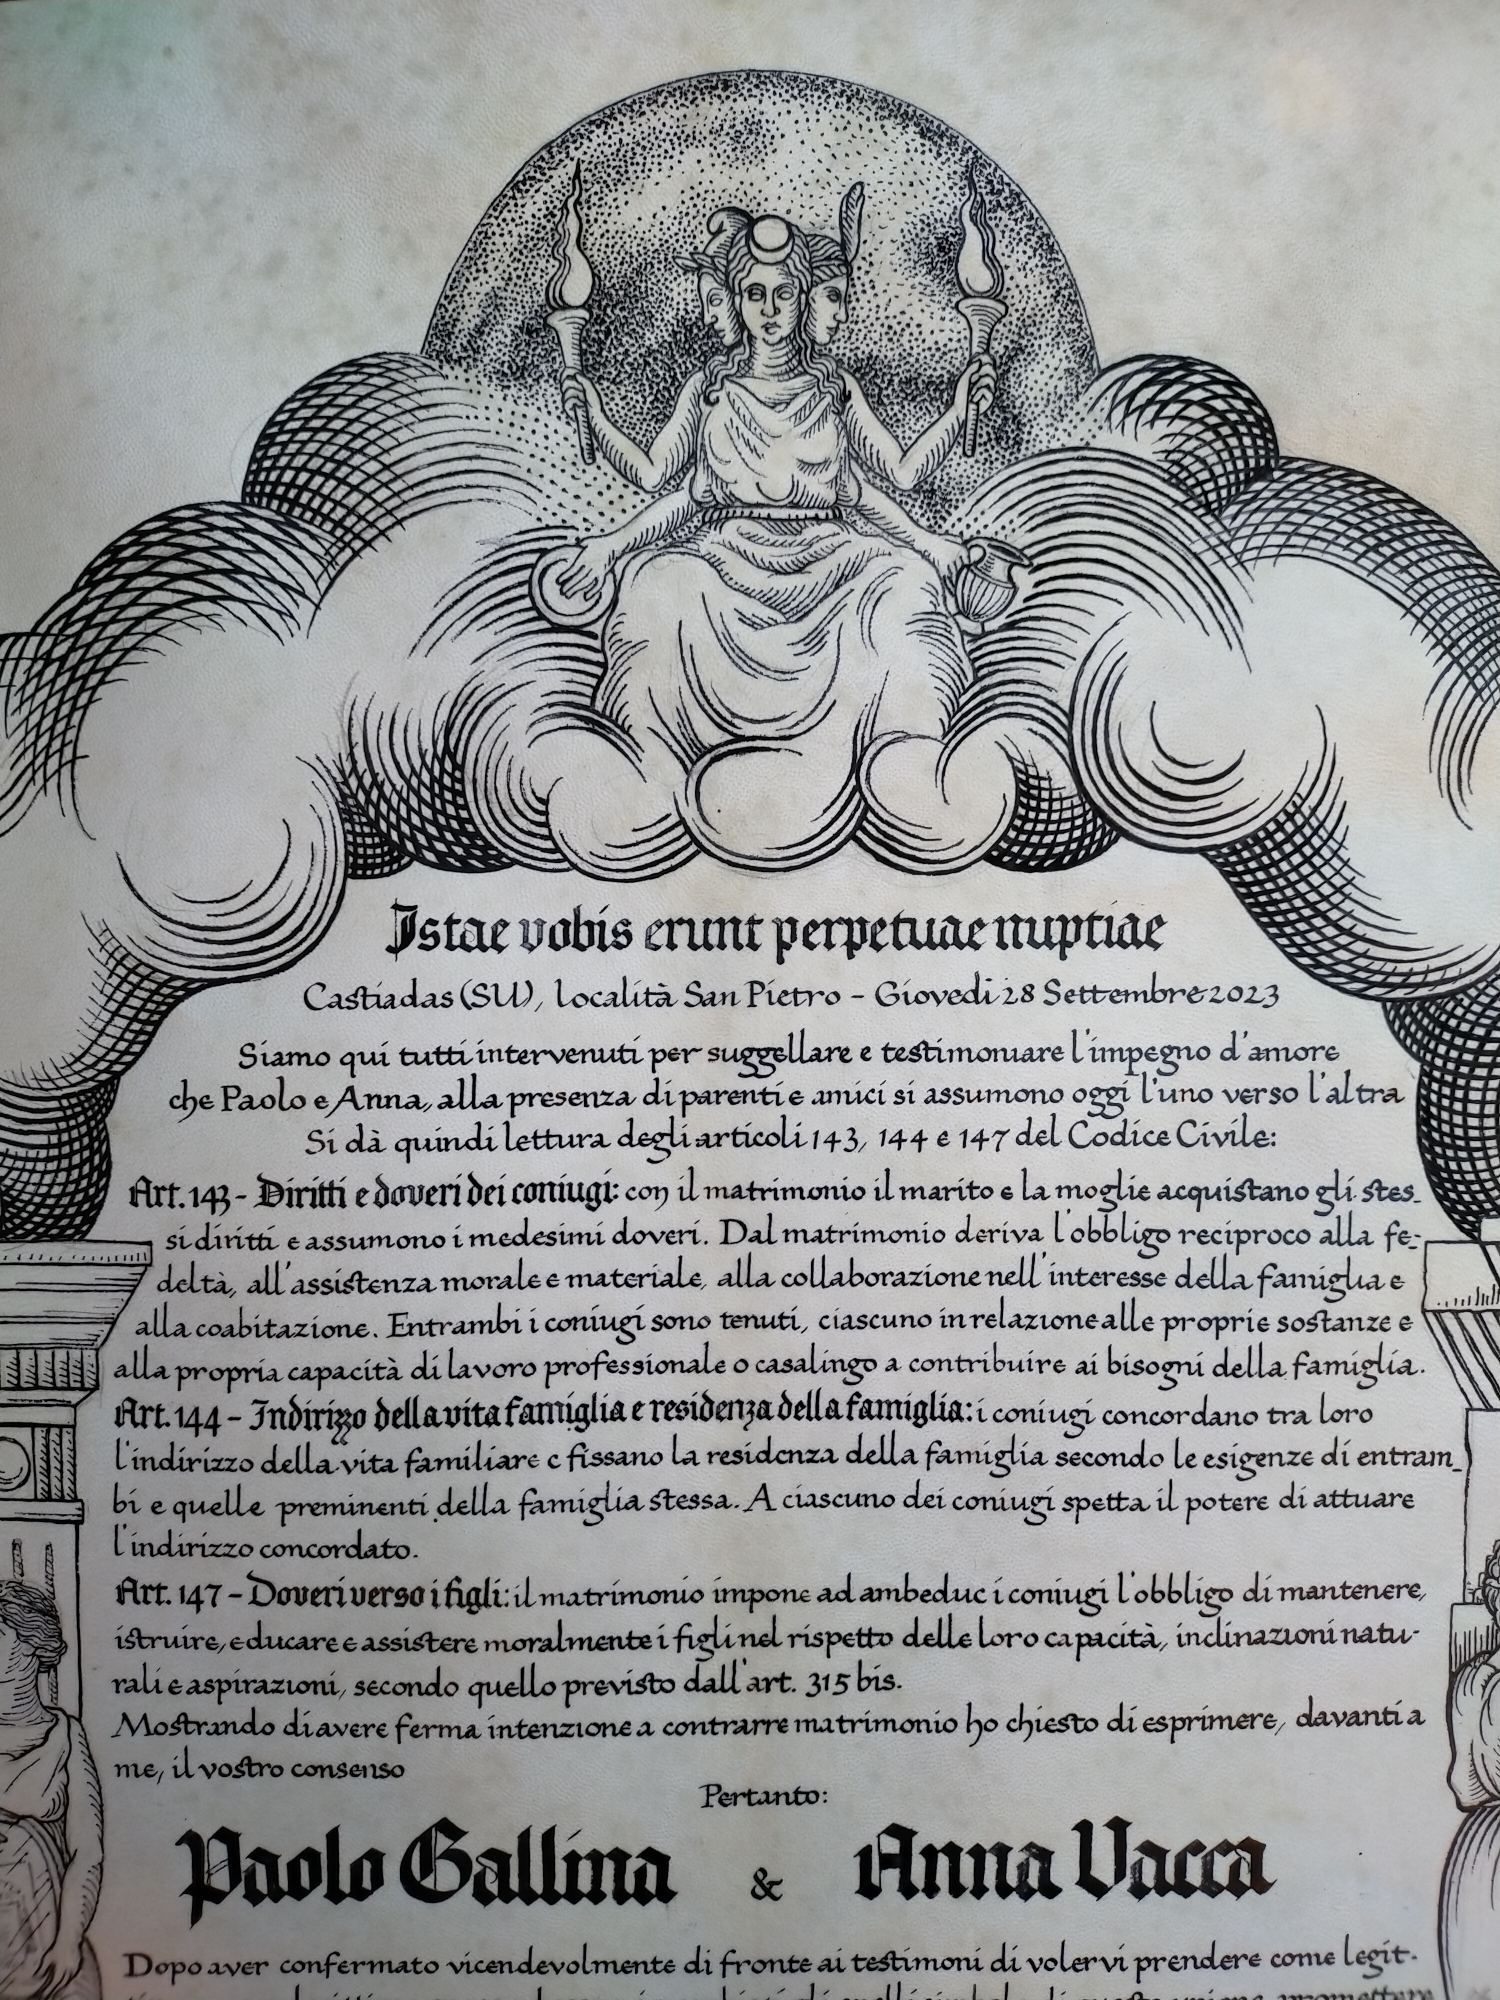 Istae vobis erunt perpetuae nuptiae
Castiadas (SU), località San Pietro - Giovedì 28 Settembre 2023
Siamo qui tutti intervenuti per suggellare e testimoniare l'impegno d'amore
che Paolo e Anna, alla presenza di parenti e amici si assumono oggi l'uno verso l'altra
Si dà quindi lettura degli articoli 143, 144 e 147 del Codice Civile:
Art. 143 - Diritti e doveri dei coniugi: con il matrimonio il marito e la moglie acquistano gli stes-
si diritti e assumono i medesimi doveri. Dal matrimonio deriva l'obbligo reciproco alla fe-
deltà, all'assistenza morale e materiale, alla collaborazione nell'interesse della famiglia e
alla coabitazione. Entrambi i coniugi sono tenuti, ciascuno in relazione alle proprie sostanze e
alla propria capacità di lavoro professionale o casalingo a contribuire ai bisogni della famiglia.
Art. 144 - Indirizzo della vita famiglia e residenza della famiglia: i coniugi concordano tra loro
l'indirizzo della vita familiare e fissano la residenza della famiglia secondo le esigenze di entram-
bi e quelle preminenti della famiglia stessa. A ciascuno dei coniugi spetta il potere di attuare
l'indirizzo concordato.
Art. 147 - Doveri verso i figli: il matrimonio impone ad ambedue i coniugi l'obbligo di mantenere,
istruire, educare e assistere moralmente i figli nel rispetto delle loro capacità, inclinazioni natu-
rali e aspirazioni, secondo quello previsto dall'art. 315 bis.
Mostrando di avere ferma intenzione a contrarre matrimonio ho chiesto di esprimere, davanti a
me, il vostro consenso
Pertanto:
Paolo Gallina & Anna Vacca
Dopo aver confermato vicendevolmente di fronte ai testimoni di volervi prendere come legit-